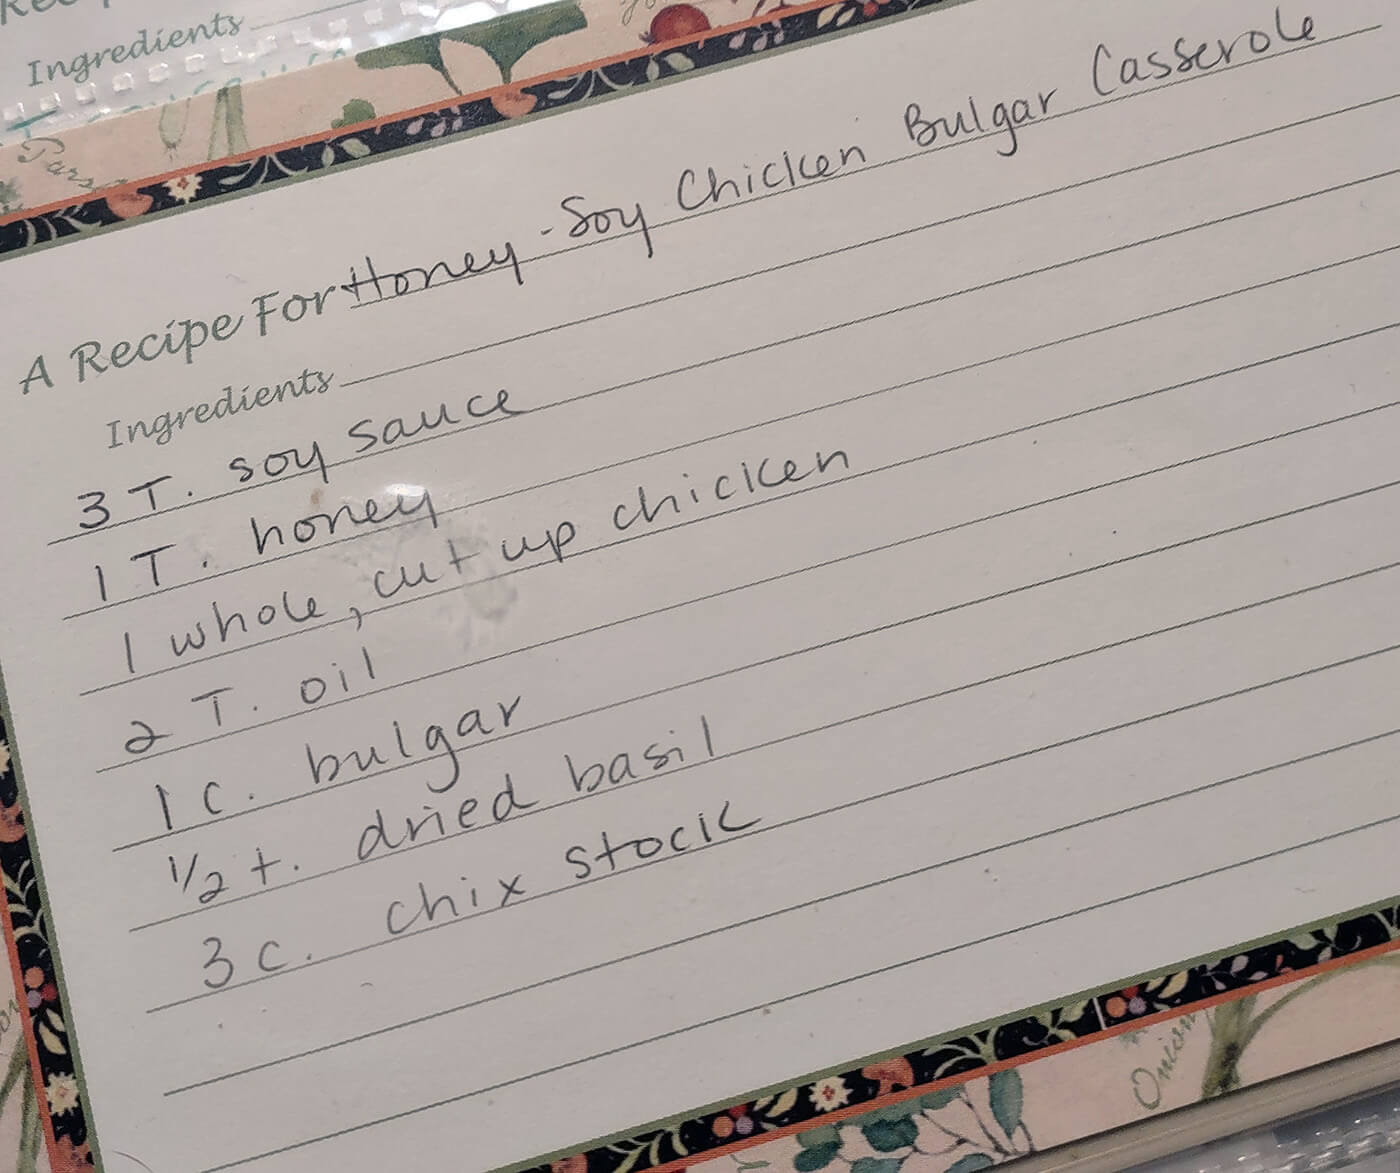 Ingredients
A Recipe For Honey-Soy Chicken Bulgar Casserole
Ingredients
3 T. soy sauce
1 T. honey
1 whole, cut up chicken
2 T. oil
1 c. bulgar
1/2 t. dried basil
3 c. chix stock
Onion